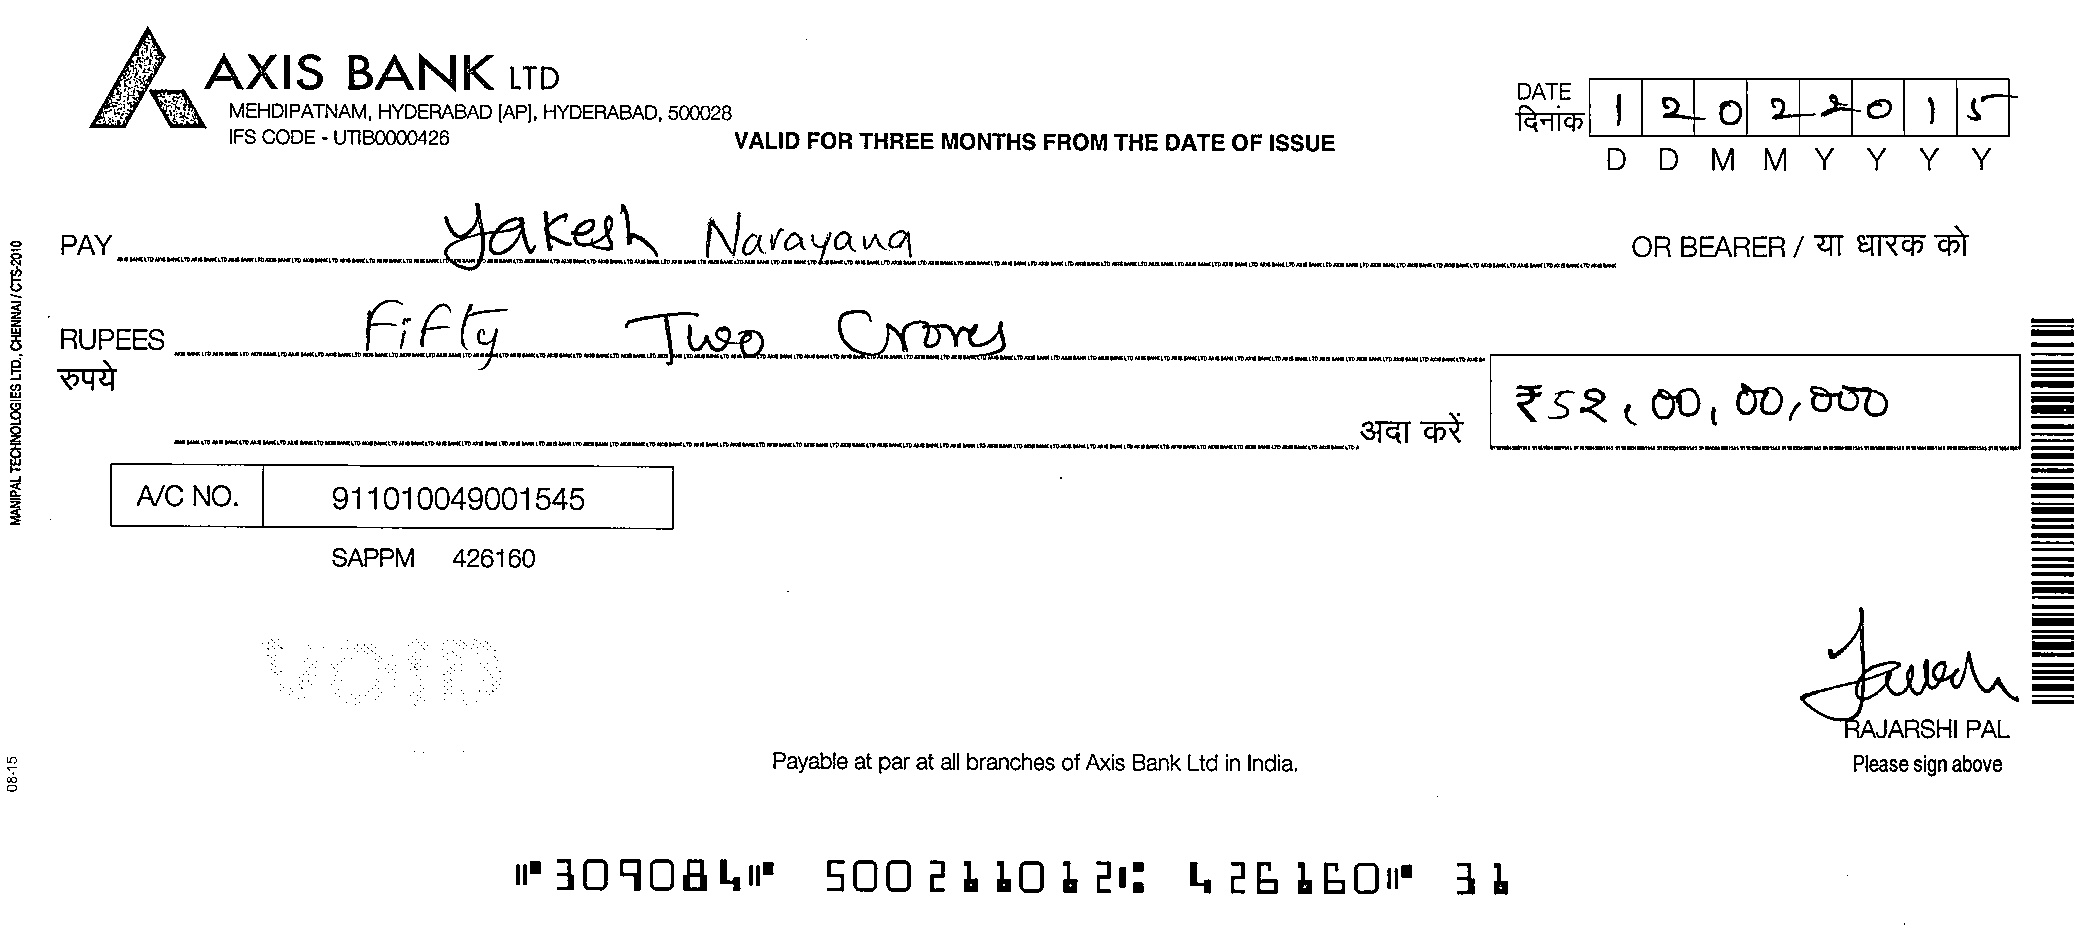 AXIS BANK LTD
MEHDIPATNAM, HYDERABAD [AP], HYDERABAD, 500028
IFS CODE - UTIB0000426
VALID FOR THREE MONTHS FROM THE DATE OF ISSUE
DATE
दिनांक
1 2 0 2 2 0 1 5
D D M M Y Y Y Y
PAY Yakesh Narayana OR BEARER / या धारक को
RUPEES Fifty Two Crores
रुपये
अदा करें ₹52,00,00,000
A/C NO. 911010049001545
SAPPM 426160
VOID
RAJARSHI PAL
Please sign above
Payable at par at all branches of Axis Bank Ltd in India.
⑈309084⑈ 500211012⑆ 426160⑈ 31
MANIPAL TECHNOLOGIES LTD., CHENNAI / CTS-2010
08-15